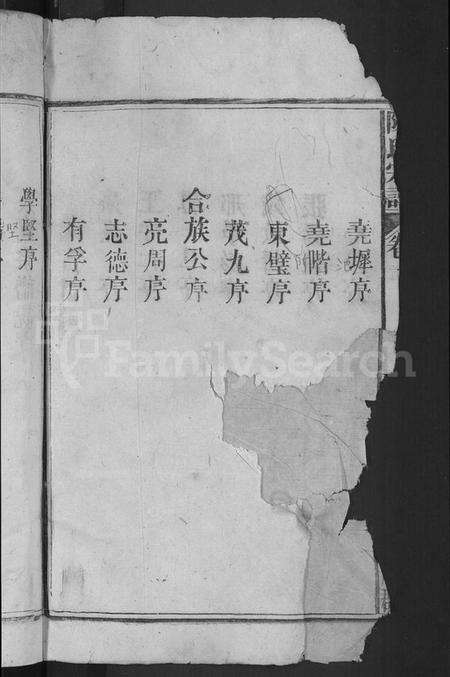 堯墀序
堯階序
東璧序
茂九序
合族公序
亮周序
志德序
有孚序
學堅序
FamilySearch